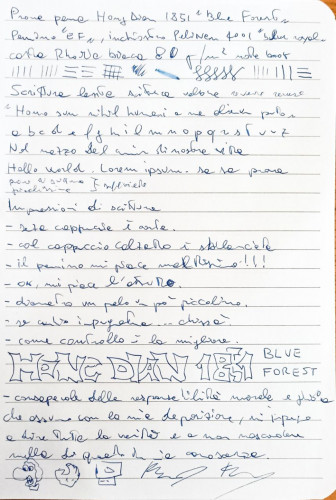 Prova penna HongDian 1851 "Blue Forest"
Pennino "EF", inchiostro Pelikan 4001 "blue royal"
carta Rhodia bianca 80 g/m² note book
Scrittura lenta
"Homo sum nihil humani a me alienum puto"
a b c d e f g h i l m n o p q r s t u v z
Nel mezzo del cammin di nostra vita
Hello world. Lorem ipsum. sa sa prova
Impressioni di scrittura
- senza cappuccio è corta.
- col cappuccio calzato è sbilanciata
- il pennino mi piace moltissimo!!!
- ok, mi piace l'
- diametro un pelo un pò piccolino.
- se cambio impugnatura ... chissà.
- come controllo è la migliore.
HONG DIAN 1851 BLUE
FOREST
- consapevole della responsabilità morale e giuridica
che assumo con la mia deposizione, mi impegno
a dire tutta la verità e a non nascondere
nulla di quanto di mia conoscenza.